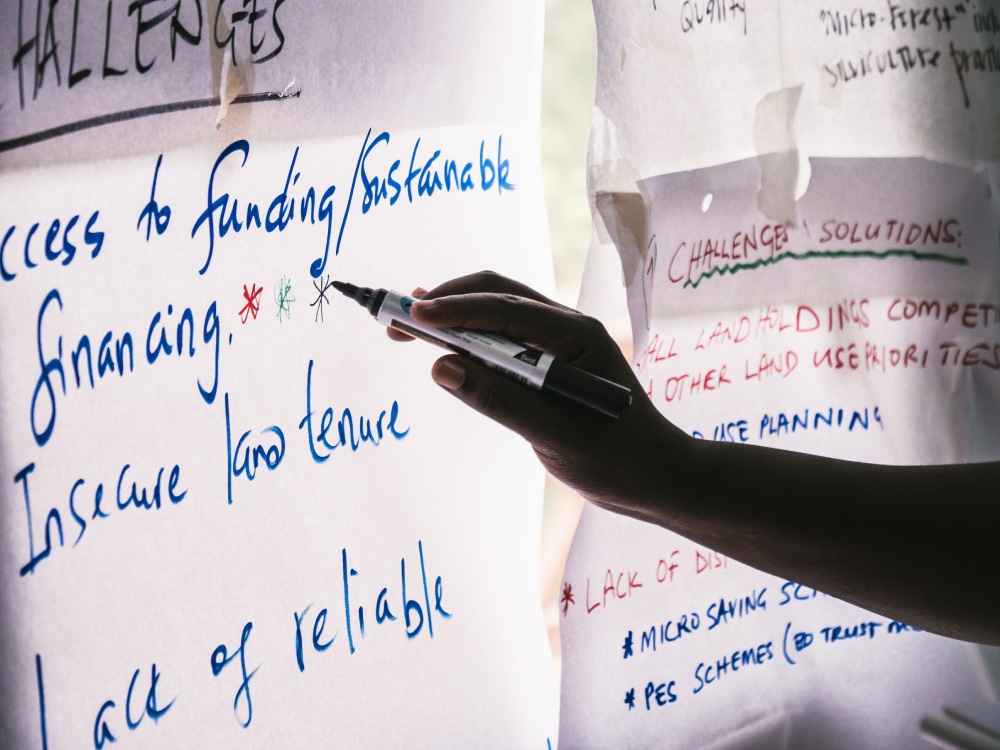 HALLENGES
ccess to funding/Sustainable
financing. * * *
Insecure land tenure
Lack of reliable
Quality
"Micro-forest"
silviculture
CHALLENGES SOLUTIONS:
ALL LANDHOLDINGS COMPETI
OTHER LAND USE PRIORITIES
USE PLANNING
* LACK OF
* MICRO SAVING
* PES SCHEMES ( TRUST